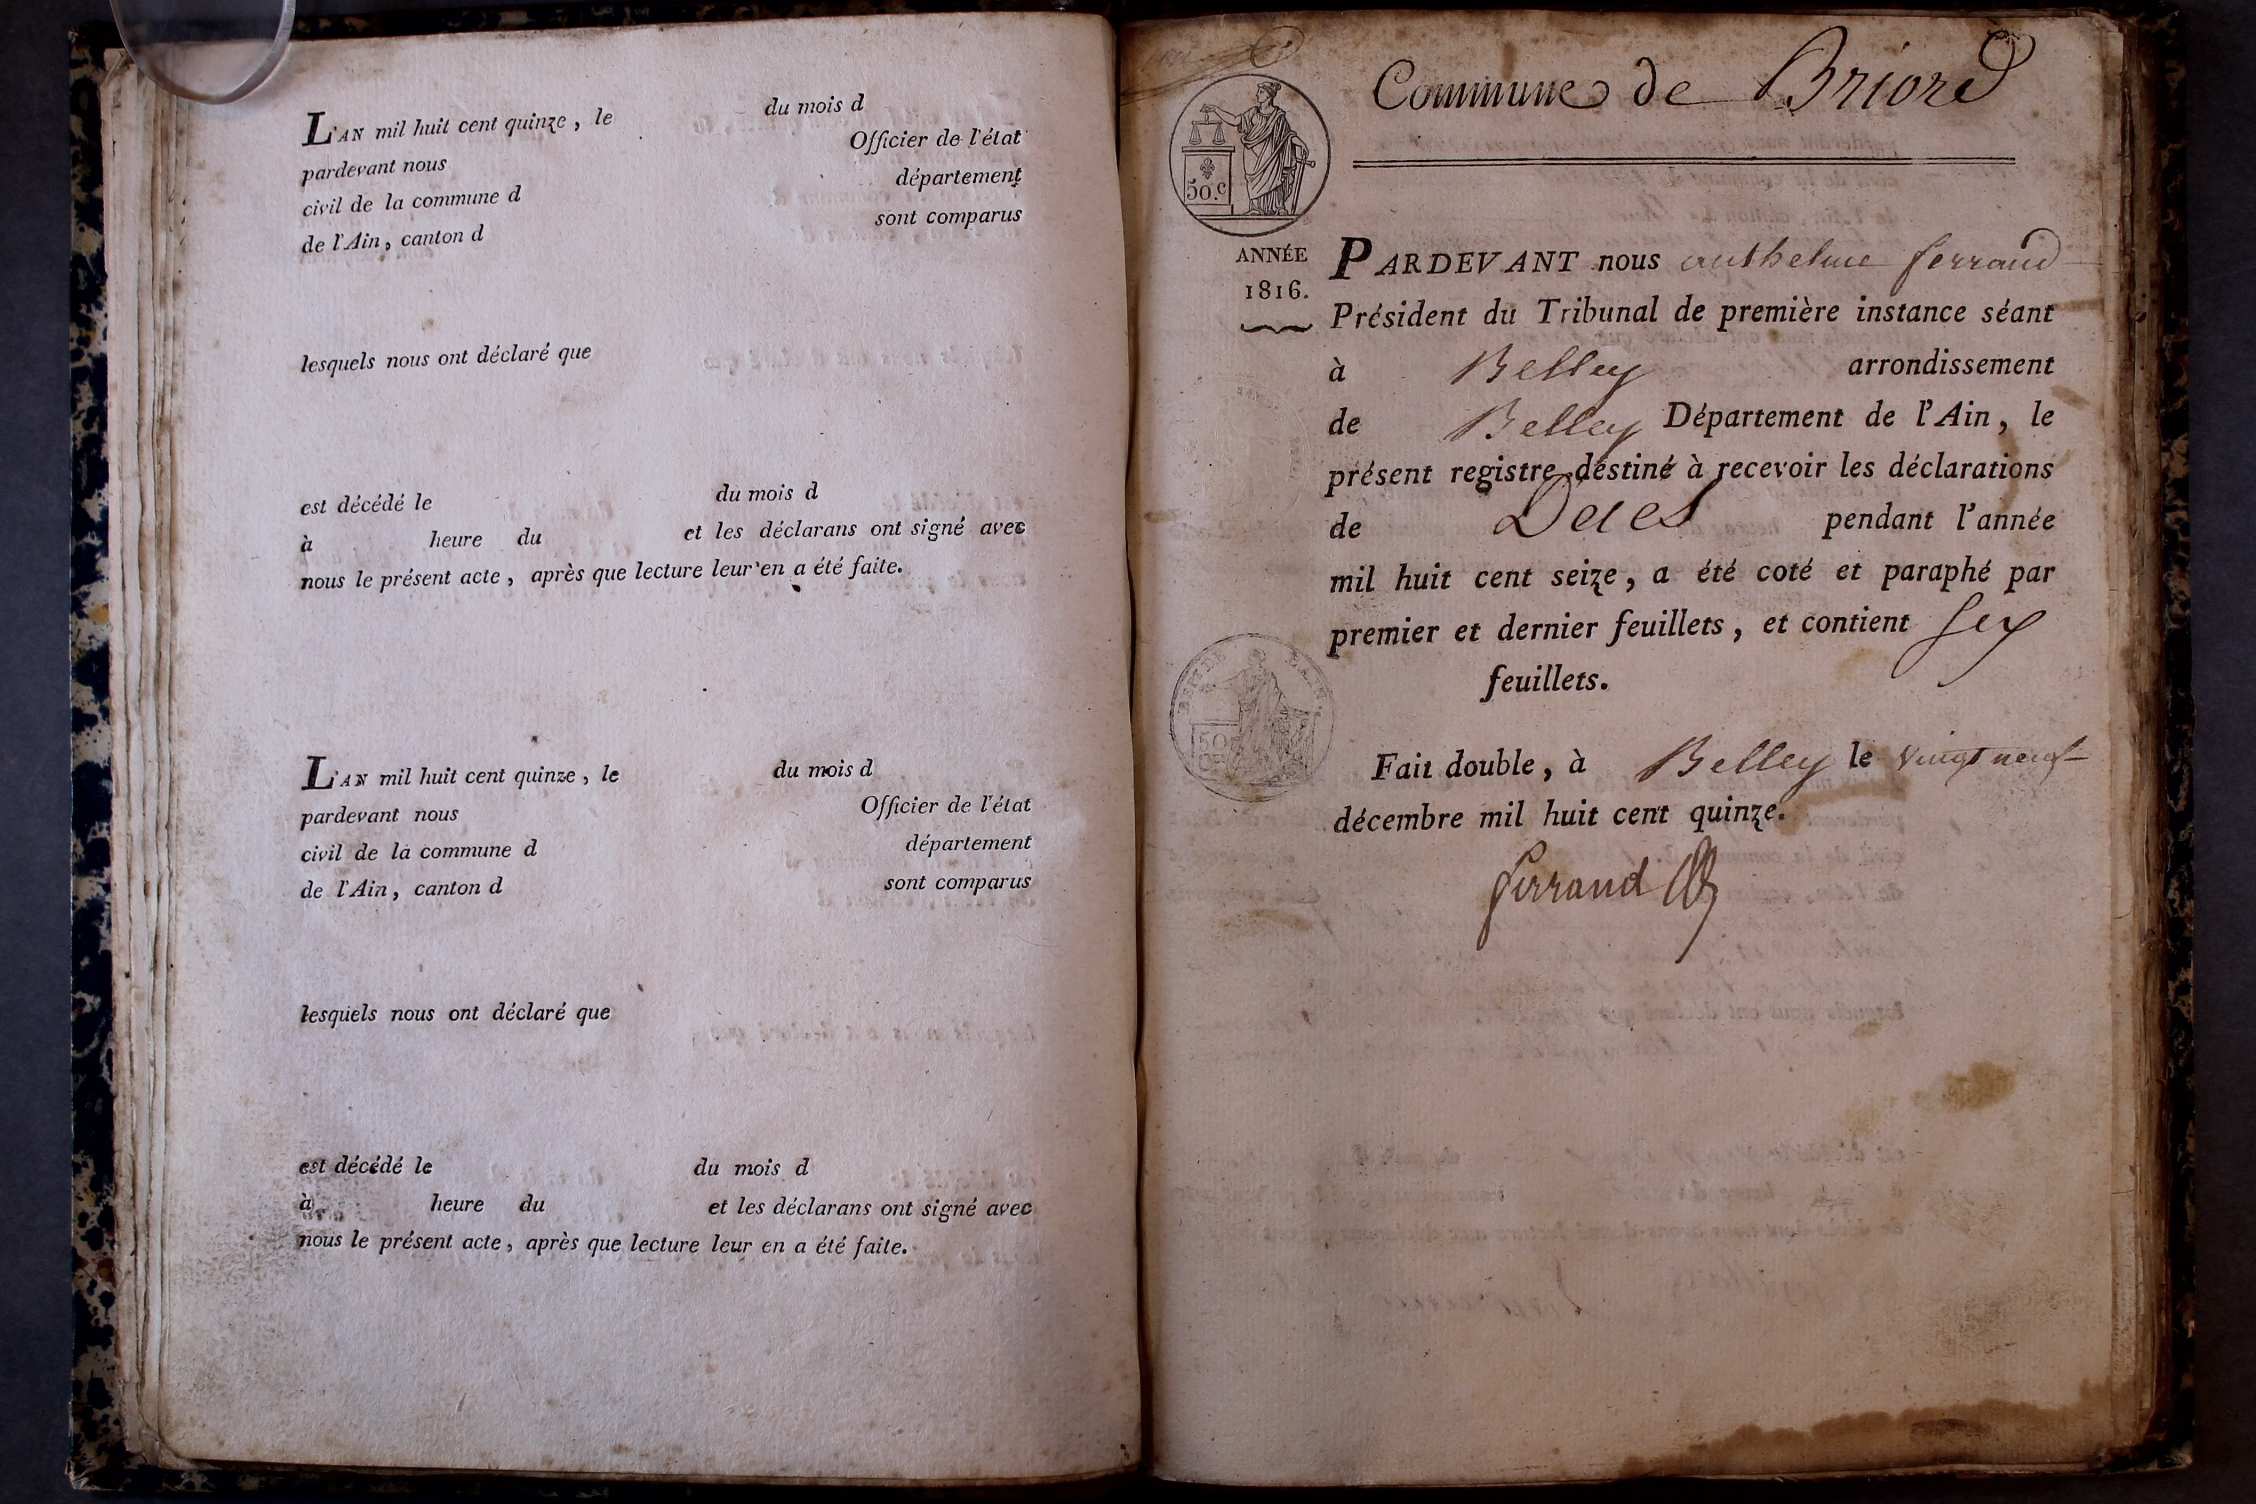 L'AN mil huit cent quinze, le du mois d
pardevant nous Officier de l'état
civil de la commune d département
de l'Ain, canton d sont comparus
lesquels nous ont déclaré que
est décédé le du mois d
à heure du et les déclarans ont signé avec
nous le présent acte, après que lecture leur en a été faite.
L'AN mil huit cent quinze, le du mois d
pardevant nous Officier de l'état
civil de la commune d département
de l'Ain, canton d sont comparus
lesquels nous ont déclaré que
est décédé le du mois d
à heure du et les déclarans ont signé avec
nous le présent acte, après que lecture leur en a été faite.
Commune de Briord
50.c
ANNÉE
1816.
PARDEVANT nous anthelme ferrand
Président du Tribunal de première instance séant
à Belley arrondissement
de Belley Département de l'Ain, le
présent registre destiné à recevoir les déclarations
de Deces pendant l'année
mil huit cent seize, a été coté et paraphé par
premier et dernier feuillets, et contient six
feuillets.
Fait double, à Belley le vingt neuf
décembre mil huit cent quinze.
ferrand